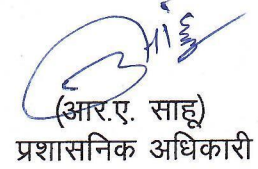 (आर.ए. साहू)
प्रशासनिक अधिकारी